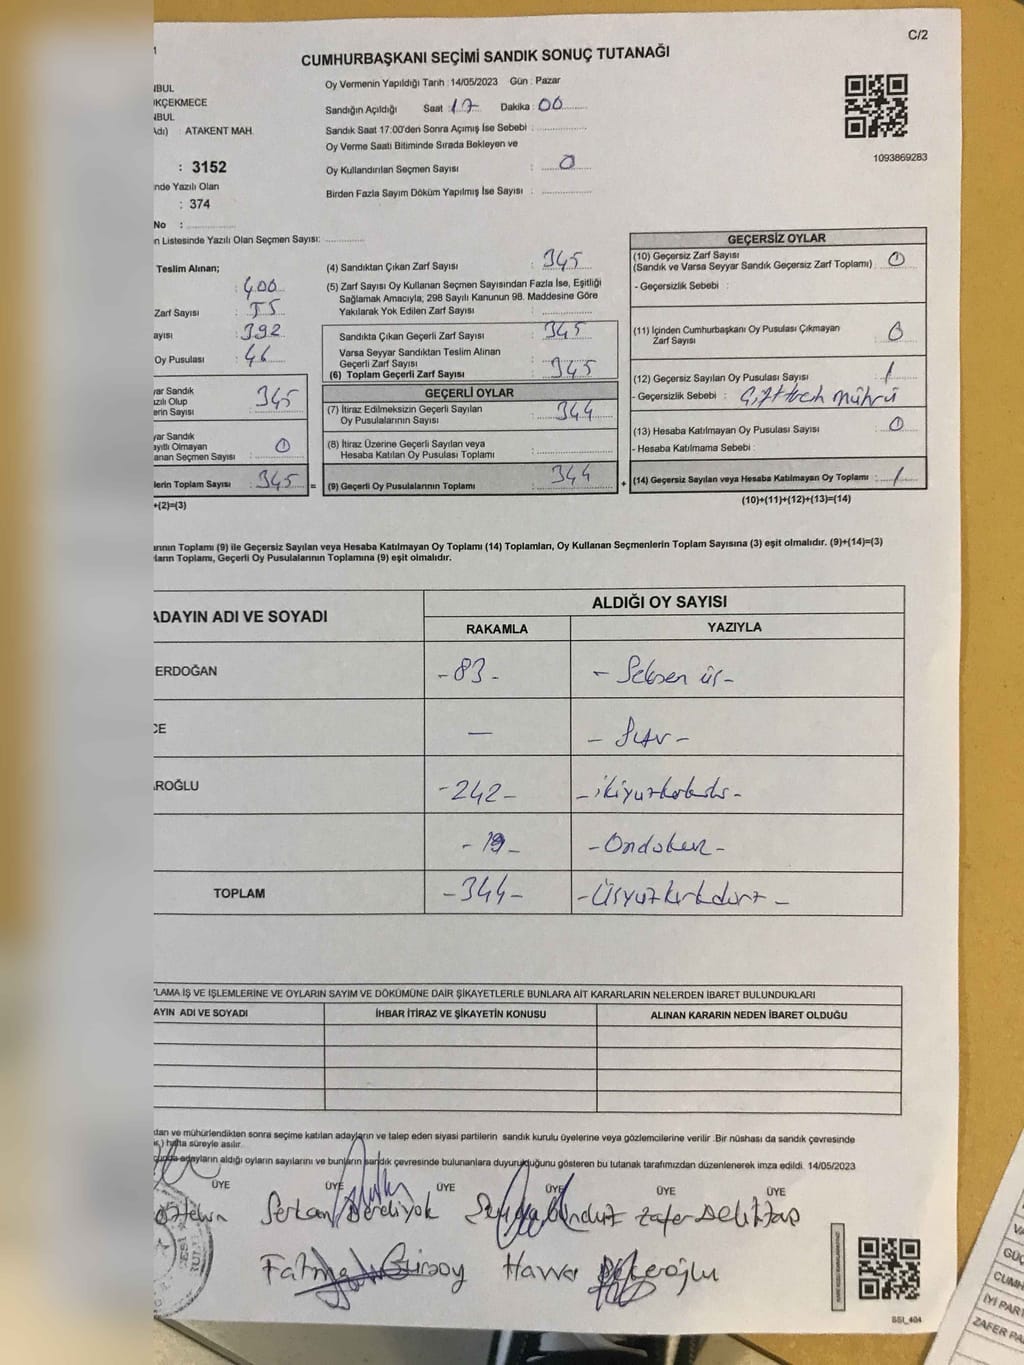 C/2
CUMHURBAŞKANI SEÇİMİ SANDIK SONUÇ TUTANAĞI
1093869283
NBUL
KÇEKMECE
NBUL
Adı) : ATAKENT MAH.
: 3152
nde Yazılı Olan
: 374
No :
n Listesinde Yazılı Olan Seçmen Sayısı:
Oy Vermenin Yapıldığı Tarih : 14/05/2023 Gün : Pazar
Sandığın Açıldığı Saat : 17 Dakika : 00
Sandık Saat 17:00'den Sonra Açımış İse Sebebi :
Oy Verme Saati Bitiminde Sırada Bekleyen ve
Oy Kullandırılan Seçmen Sayısı : 0
Birden Fazla Sayım Döküm Yapılmış İse Sayısı :
Teslim Alınan;
: 400
Zarf Sayısı : 55
ayısı : 392
Oy Pusulası : 46
yar Sandık
azılı Olup
erin Sayısı 345
yar Sandık
ayıtlı Olmayan
anan Seçmen Sayısı 0
lerin Toplam Sayısı : 345 =
+(2)=(3)
(4) Sandıktan Çıkan Zarf Sayısı : 345
(5) Zarf Sayısı Oy Kullanan Seçmen Sayısından Fazla İse, Eşitliği
Sağlamak Amacıyla, 298 Sayılı Kanunun 98. Maddesine Göre
Yakılarak Yok Edilen Zarf Sayısı :
Sandıkta Çıkan Geçerli Zarf Sayısı : 345
Varsa Seyyar Sandıktan Teslim Alınan
Geçerli Zarf Sayısı
(6) Toplam Geçerli Zarf Sayısı : 345
GEÇERLİ OYLAR
(7) İtiraz Edilmeksizin Geçerli Sayılan
Oy Pusulalarının Sayısı : 344
(8) İtiraz Üzerine Geçerli Sayılan veya
Hesaba Katılan Oy Pusulası Toplamı :
(9) Geçerli Oy Pusulalarının Toplamı : 344 +
GEÇERSİZ OYLAR
(10) Geçersiz Zarf Sayısı
(Sandık ve Varsa Seyyar Sandık Geçersiz Zarf Toplamı) : 0
- Geçersizlik Sebebi :
(11) İçinden Cumhurbaşkanı Oy Pusulası Çıkmayan
Zarf Sayısı : 0
(12) Geçersiz Sayılan Oy Pusulası Sayısı : 1
- Geçersizlik Sebebi : Çift tercih mührü
(13) Hesaba Katılmayan Oy Pusulası Sayısı : 0
- Hesaba Katılmama Sebebi :
(14) Geçersiz Sayılan veya Hesaba Katılmayan Oy Toplamı : 1
(10)+(11)+(12)+(13)=(14)
arının Toplamı (9) ile Geçersiz Sayılan veya Hesaba Katılmayan Oy Toplamı (14) Toplamları, Oy Kullanan Seçmenlerin Toplam Sayısına (3) eşit olmalıdır. (9)+(14)=(3)
ların Toplamı, Geçerli Oy Pusulalarının Toplamına (9) eşit olmalıdır.
ADAYIN ADI VE SOYADI
ALDIĞI OY SAYISI
RAKAMLA YAZIYLA
ERDOĞAN -83- - Seksen üç -
CE — - Sıfır -
AROĞLU -242- - ikiyüzkırkiki -
-19- - Ondokuz -
TOPLAM -344- - Üçyüzkırkdört -
LAMA İŞ VE İŞLEMLERİNE VE OYLARIN SAYIM VE DÖKÜMÜNE DAİR ŞİKAYETLERLE BUNLARA AİT KARARLARIN NELERDEN İBARET BULUNDUKLARI
AYIN ADI VE SOYADI İHBAR İTİRAZ VE ŞİKAYETİN KONUSU ALINAN KARARIN NEDEN İBARET OLDUĞU
dan ve mühürlendikten sonra seçime katılan adayların ve talep eden siyasi partilerin sandık kurulu üyelerine veya gözlemcilerine verilir. Bir nüshası da sandık çevresinde
) hafta süreyle asılır.
adayların aldığı oyların sayılarını ve bunların sandık çevresinde bulunanlara duyurulduğunu gösteren bu tutanak tarafımızdan düzenlenerek imza edildi. 14/05/2023
ÜYE ÜYE ÜYE ÜYE ÜYE ÜYE
Serkan Berdiyok Zafer Delıktaş
Fatma Gürsoy Havva
SSI_404
GÜÇ
CUMH
İYİ PART
ZAFER PA